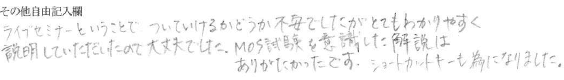 その他自由記入欄
ライブセミナーということで ついていけるかどうか不安でしたがとてもわかりやすく
説明していただいたので大丈夫でした。MOS試験を意識した解説は
ありがたかったです。ショートカットキーも為になりました。